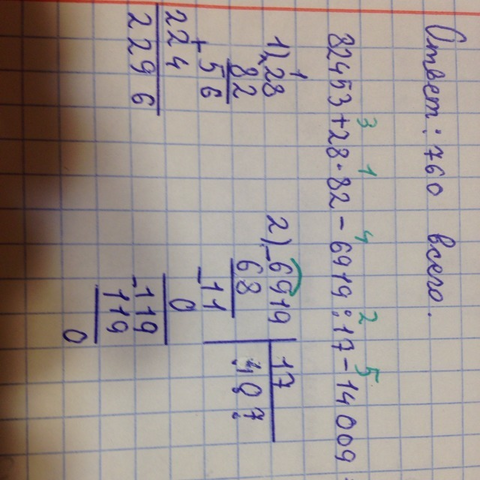 Ответ: 760 всего.
3 1 4 2 5
82453+28·82-6919:17-14009
1) 28
82
56
+
224
2296
2) 6919 | 17
68 | 407
-11
0
-119
119
0